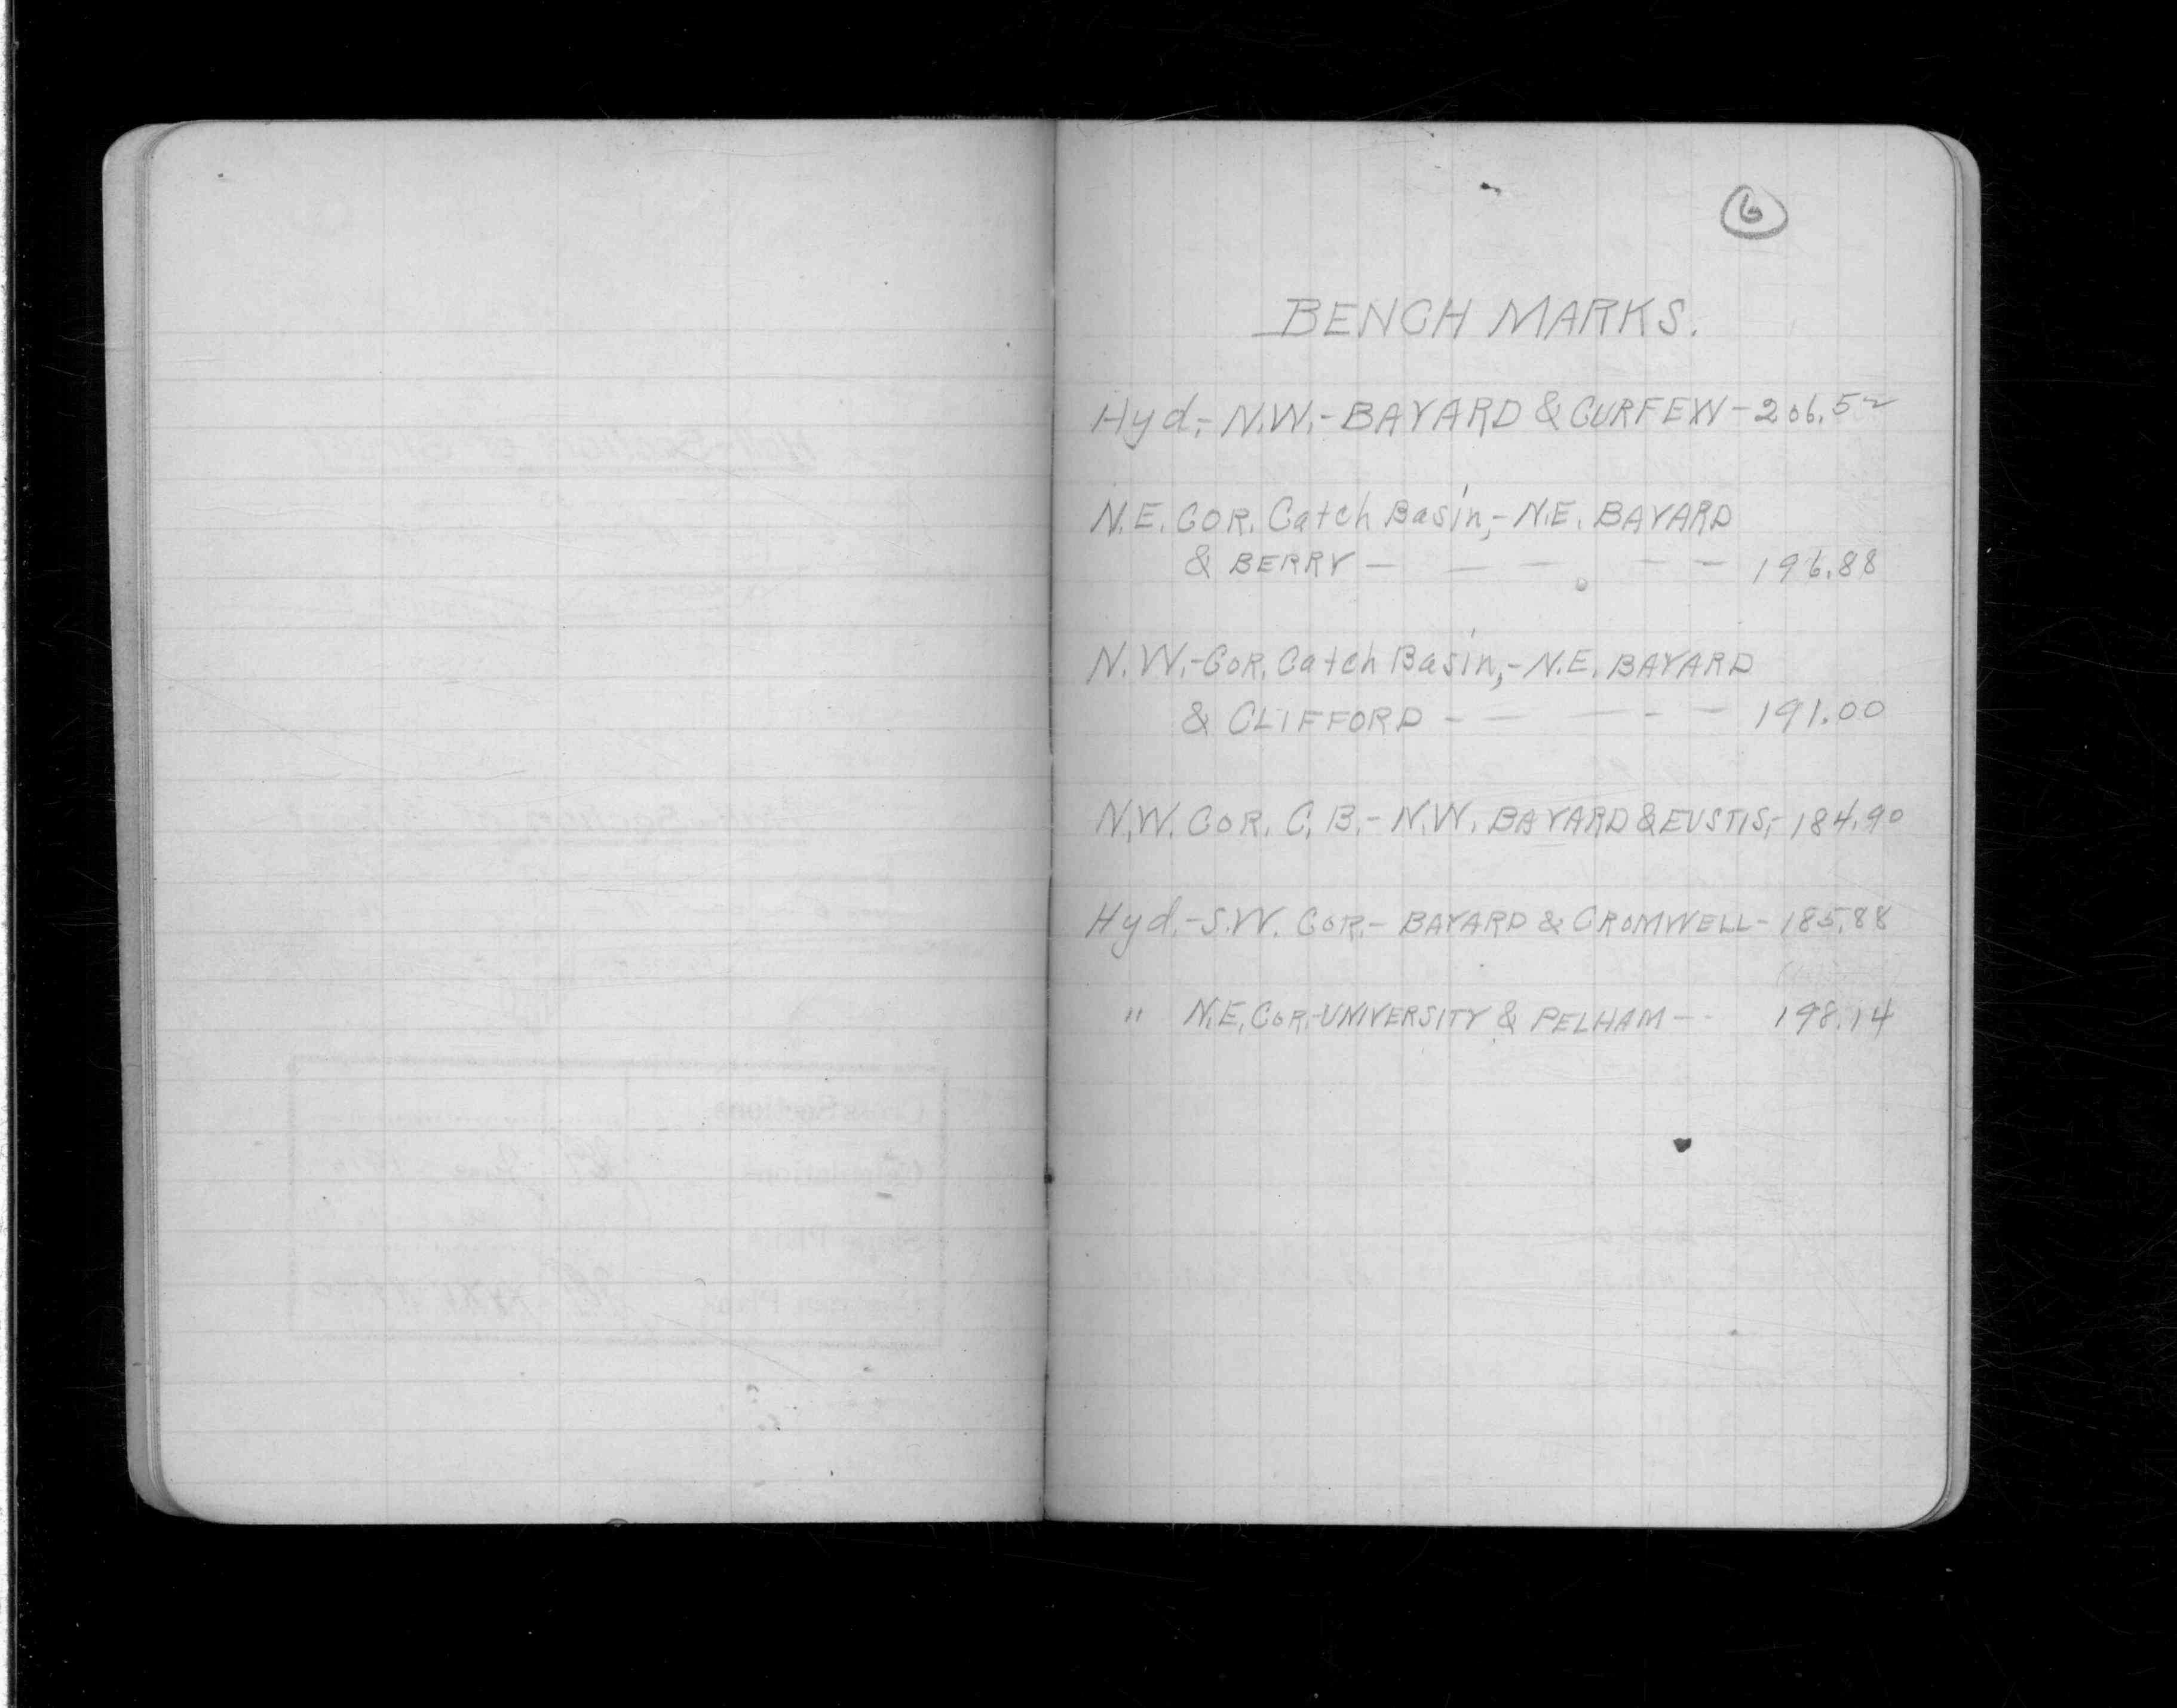 6
BENCH MARKS.
Hyd,- N.W.- BAYARD & CURFEW - 206.52
N.E. COR. Catch Basin,- N.E. BAYARD
& BERRY - - - - - 196.88
N.W.-COR. Catch Basin,- N.E. BAYARD
& CLIFFORD - - - - - 191.00
N.W. COR. C.B.- N.W. BAYARD & EUSTIS,- 184.90
Hyd.-S.W. COR.- BAYARD & CROMWELL- 185.88
" N.E. COR.-UNIVERSITY & PELHAM - - 198.14